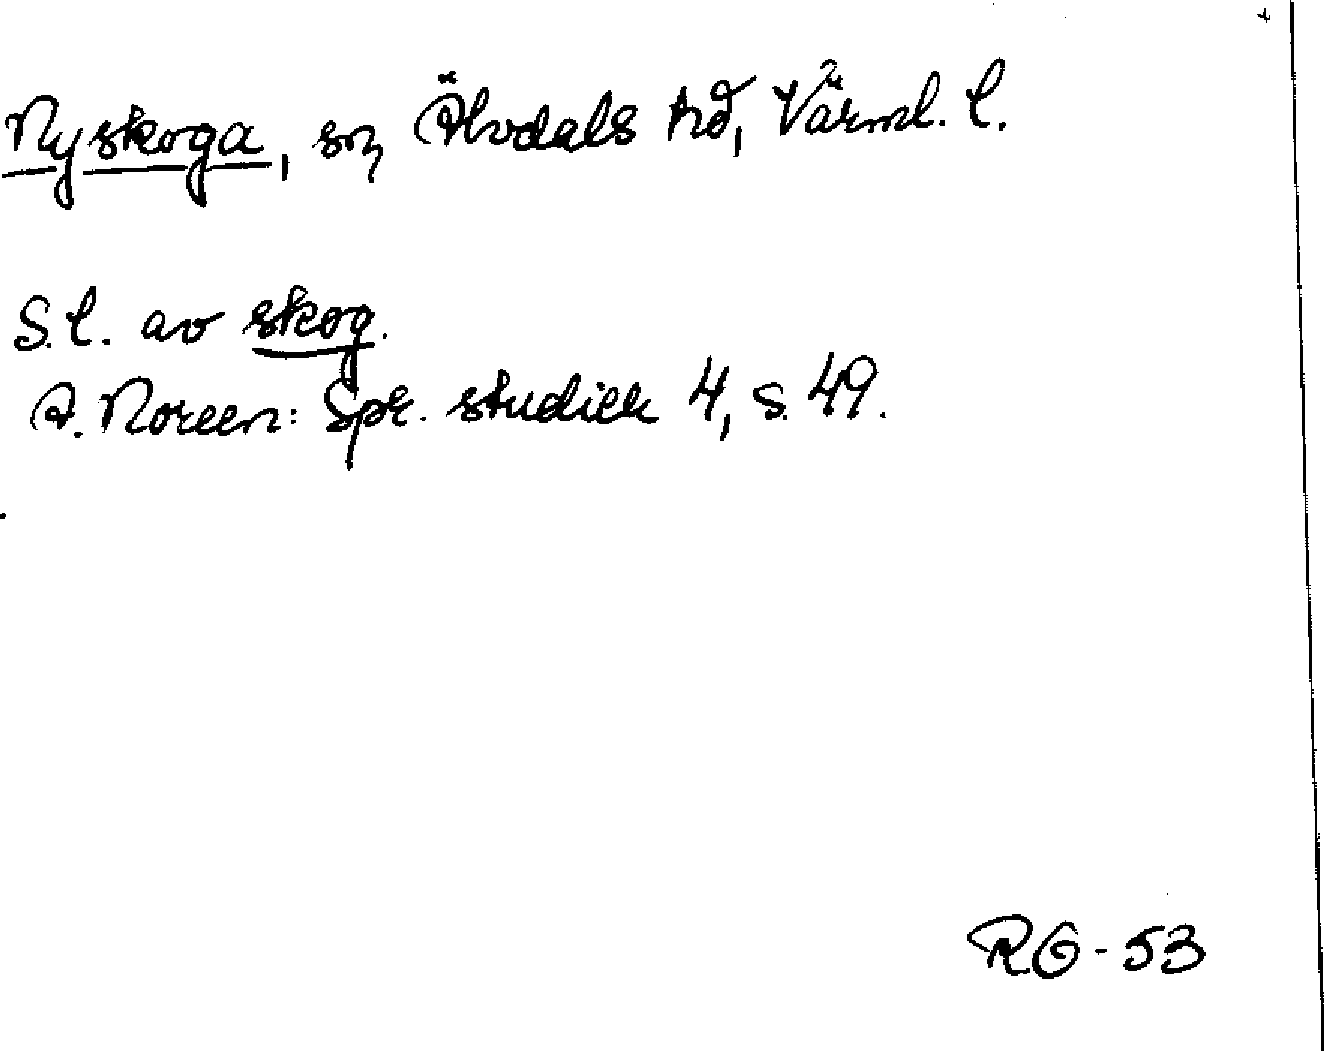 Nyskoga, sn, Älvdals hd, Värml. l.
S.l. av skog.
A. Noreen: Spr. studier 4, s. 49.
RG-53